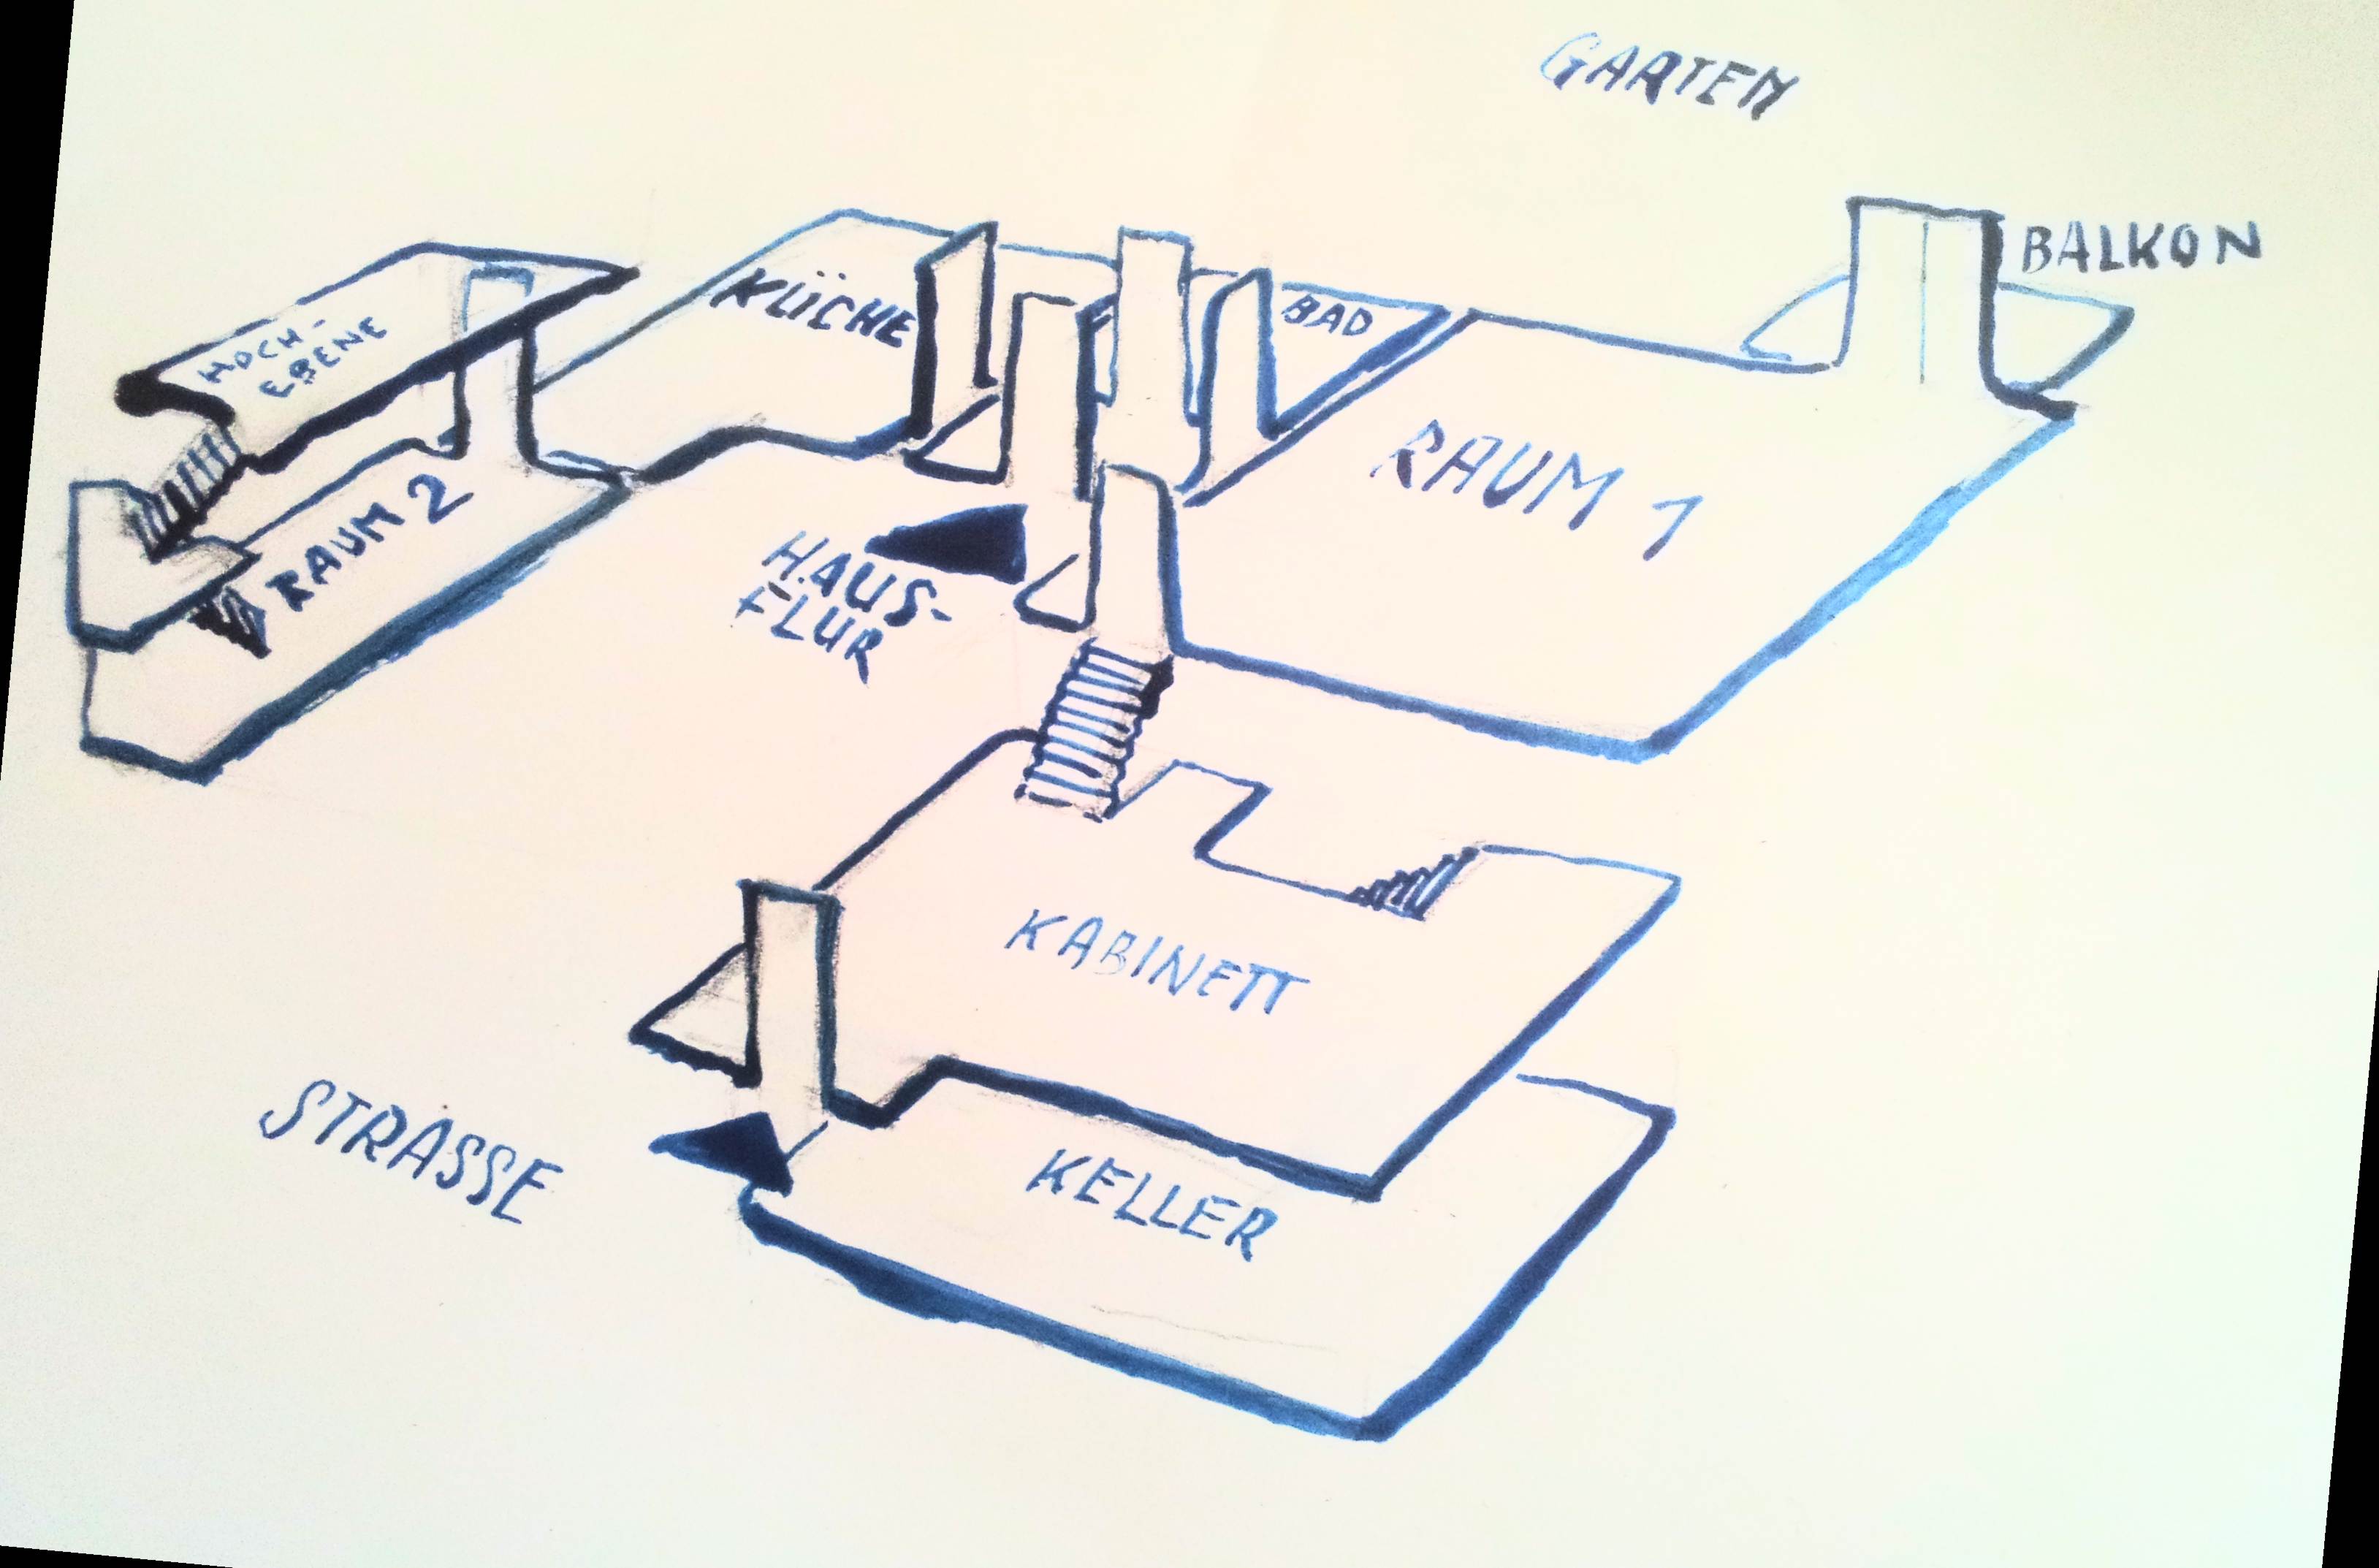 GARTEN
BALKON
KÜCHE
BAD
HOCH-
EBENE
RAUM 1
RAUM 2
HAUS-
FLUR
KABINETT
STRASSE
KELLER